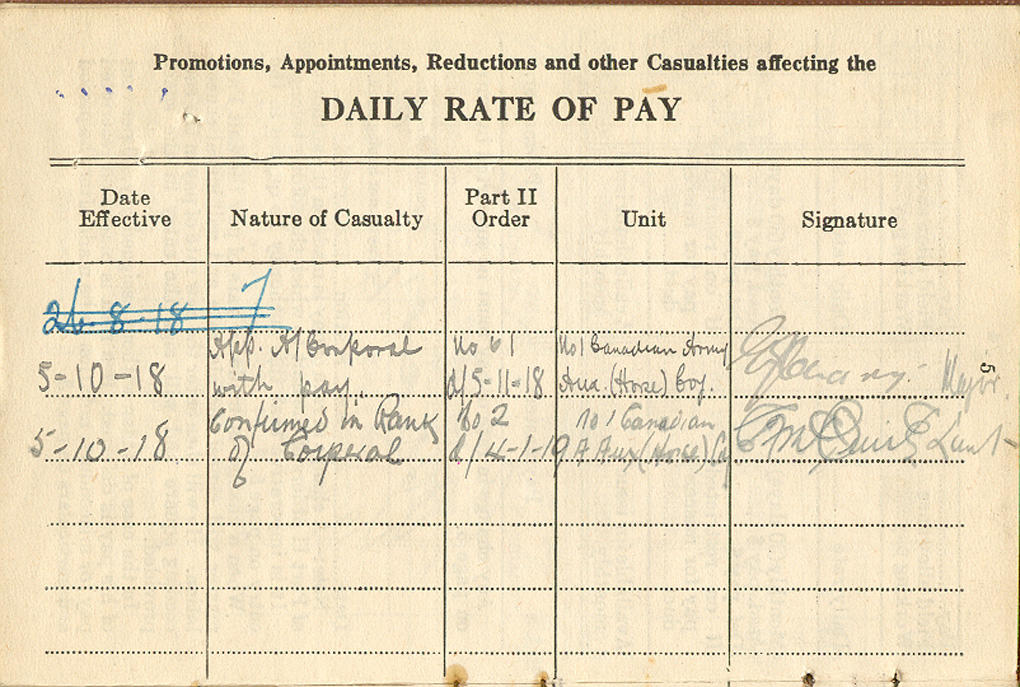 Promotions, Appointments, Reductions and other Casualties affecting the
DAILY RATE OF PAY
Date Effective
Nature of Casualty
Part II Order
Unit
Signature
26-8-18
5-10-18
App. A/Corporal
with pay.
No 61
d/5-11-18
No 1 Canadian Army
Aux. (Horse) Coy.
Major.
5
5-10-18
Confirmed in Rank
of Corporal
No 2
d/4-1-19
No 1 Canadian
A Aux (Horse) Coy
Lieut